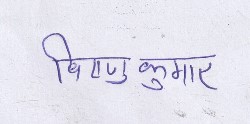 विष्णु कुमार